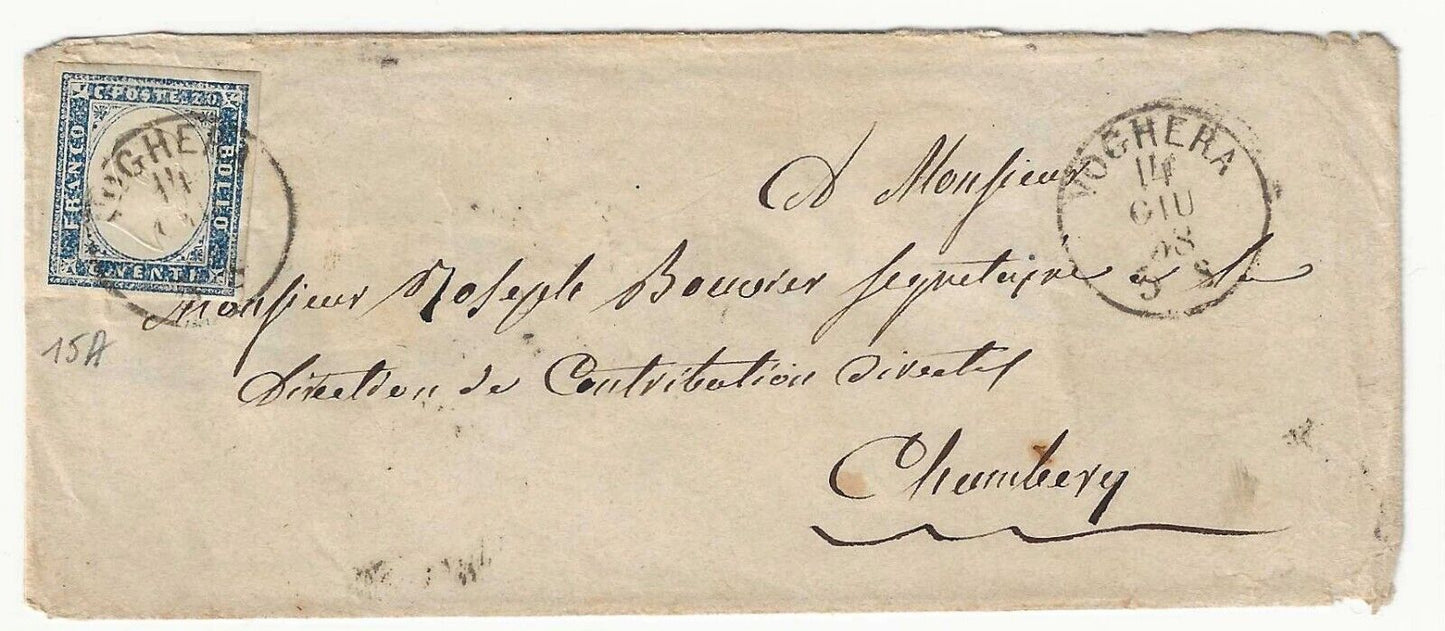 C. POSTE 20
FRANCO
BOLLO
C. VENTI
VOGHERA
14
15A
VOGHERA
14
GIU
58
A Monsieur
Monsieur Joseph Bouvier segretaire a la
Direction de Contribution directes
Chambery